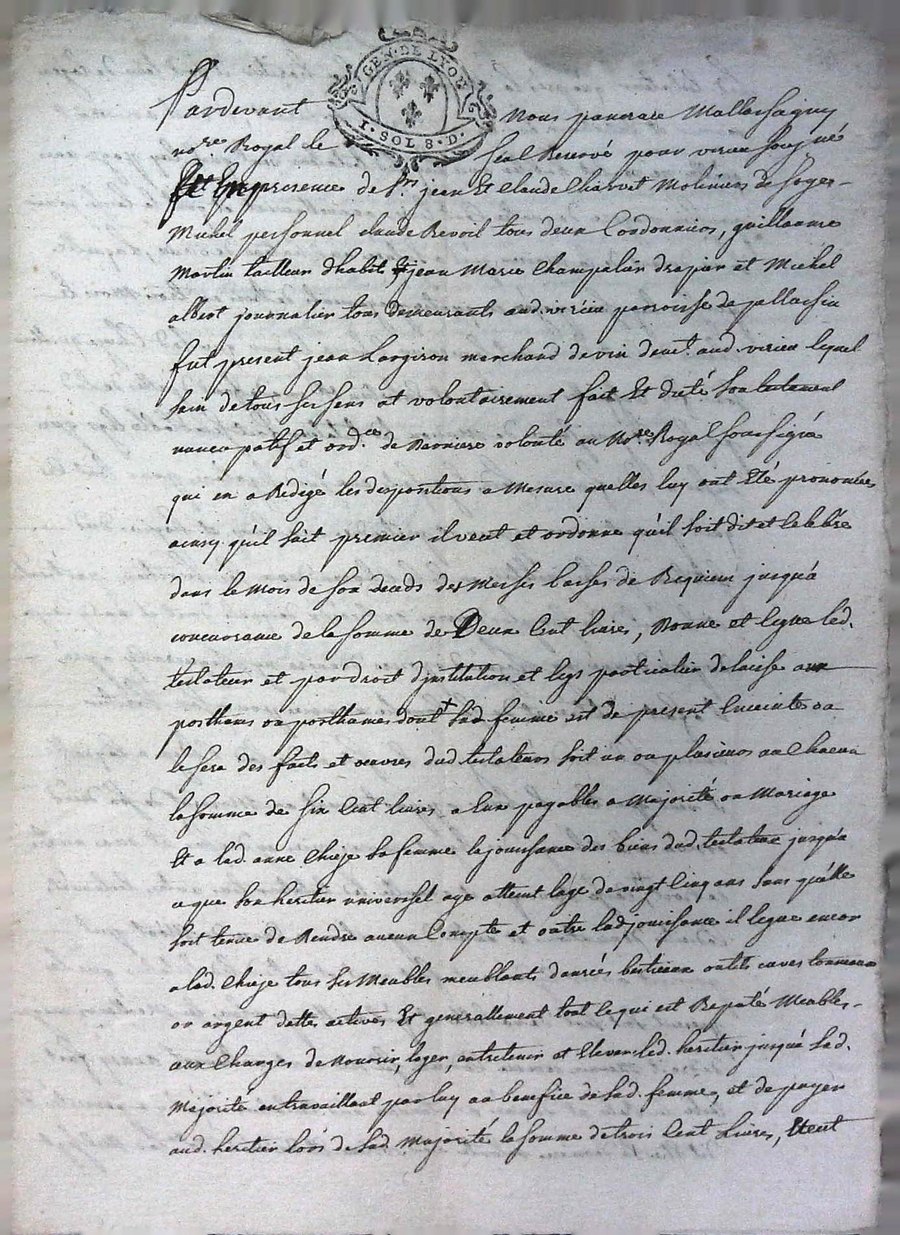 GEN · DE LYON
1 · SOL 8 · D ·
Pardevant Nous pancrace
no.re Royal le Seal Reservé pour virieu soussigné
Et En presence de Srs jean Et Claude Charvet Moliniers de soye
Michel personnel claude Revoil tous deux Cordonniers, guillaume
Martin tailleur dhabit & jean Marie Champalin drapier et Michel
albert journalier tous Demeurants aud. virieu parroisse de pellachin
fut present jean Largiron marchand de vin demt. aud. virieu lequel
sain de tous ses sens et volontairement fait Et dicté son testament
nuncupatif et ordce. de Derniere volonté au No.re Royal soussigné
qui en a Redigé les dispositions a Mesure quelles luy ont Eté prononcées
ainsy qu'il suit premier il veut et ordonne qu'il soit dit et celebré
dans le Mois de son deceds des Messes basses de Requiem jusqu'a
concurrance de la somme de Deux Cent livres, Donne et legue led.
testateur et par droit d'jnstitution et legs particulier delaisse aux
posthume ou posthumes dont sad. femme est de present Enceinte ou
le sera des faits et œuvres dud. testateur soit un ou plusieurs au Chacun
la somme de six Cent livres a Eux payables a Majorité ou Mariage
Et a lad. anne Chieze sa femme la jouissance des biens dud. testateur jusqu'a
ce que son heritier universel aye atteint lage de vingt Cinq ans sans qu'elle
soit tenue de Rendre aucun Compte et outre lad. jouissance il legue encor
a lad. Chieze tous ses Meubles meublants danrées bestieaux outils cuves tonneaux
or argent dettes actives Et generallement tout ce qui est Reputé Meubles
aux Charges de Nourrir, loger, entretenir et Elever led. heritier jusqu'a sad.
Majorité en travaillant par luy au benefice de sad. femme, et de payer
aud. heritier lors de sad. Majorité la somme de trois Cent livres, Et est